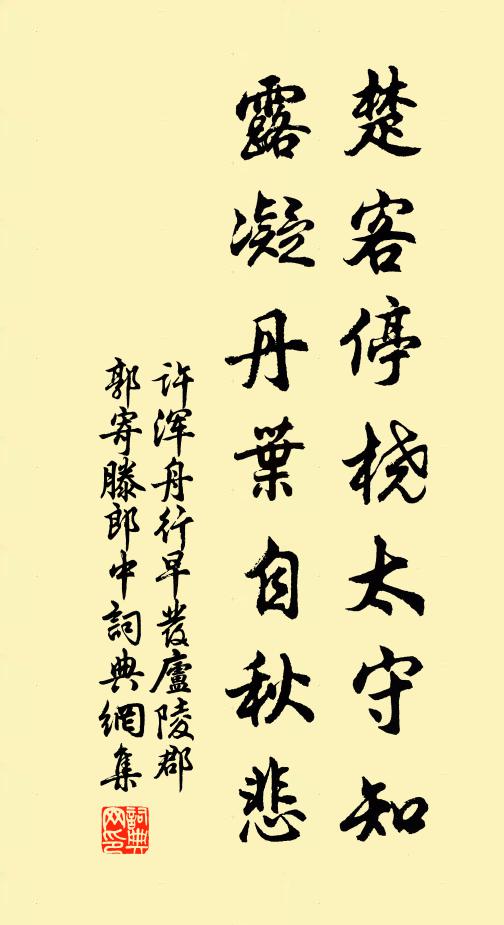 楚客停桡太守知
露凝丹葉自秋悲
许浑舟行早發廬陵郡
郭寄滕郎中詞典網集
詞典网印